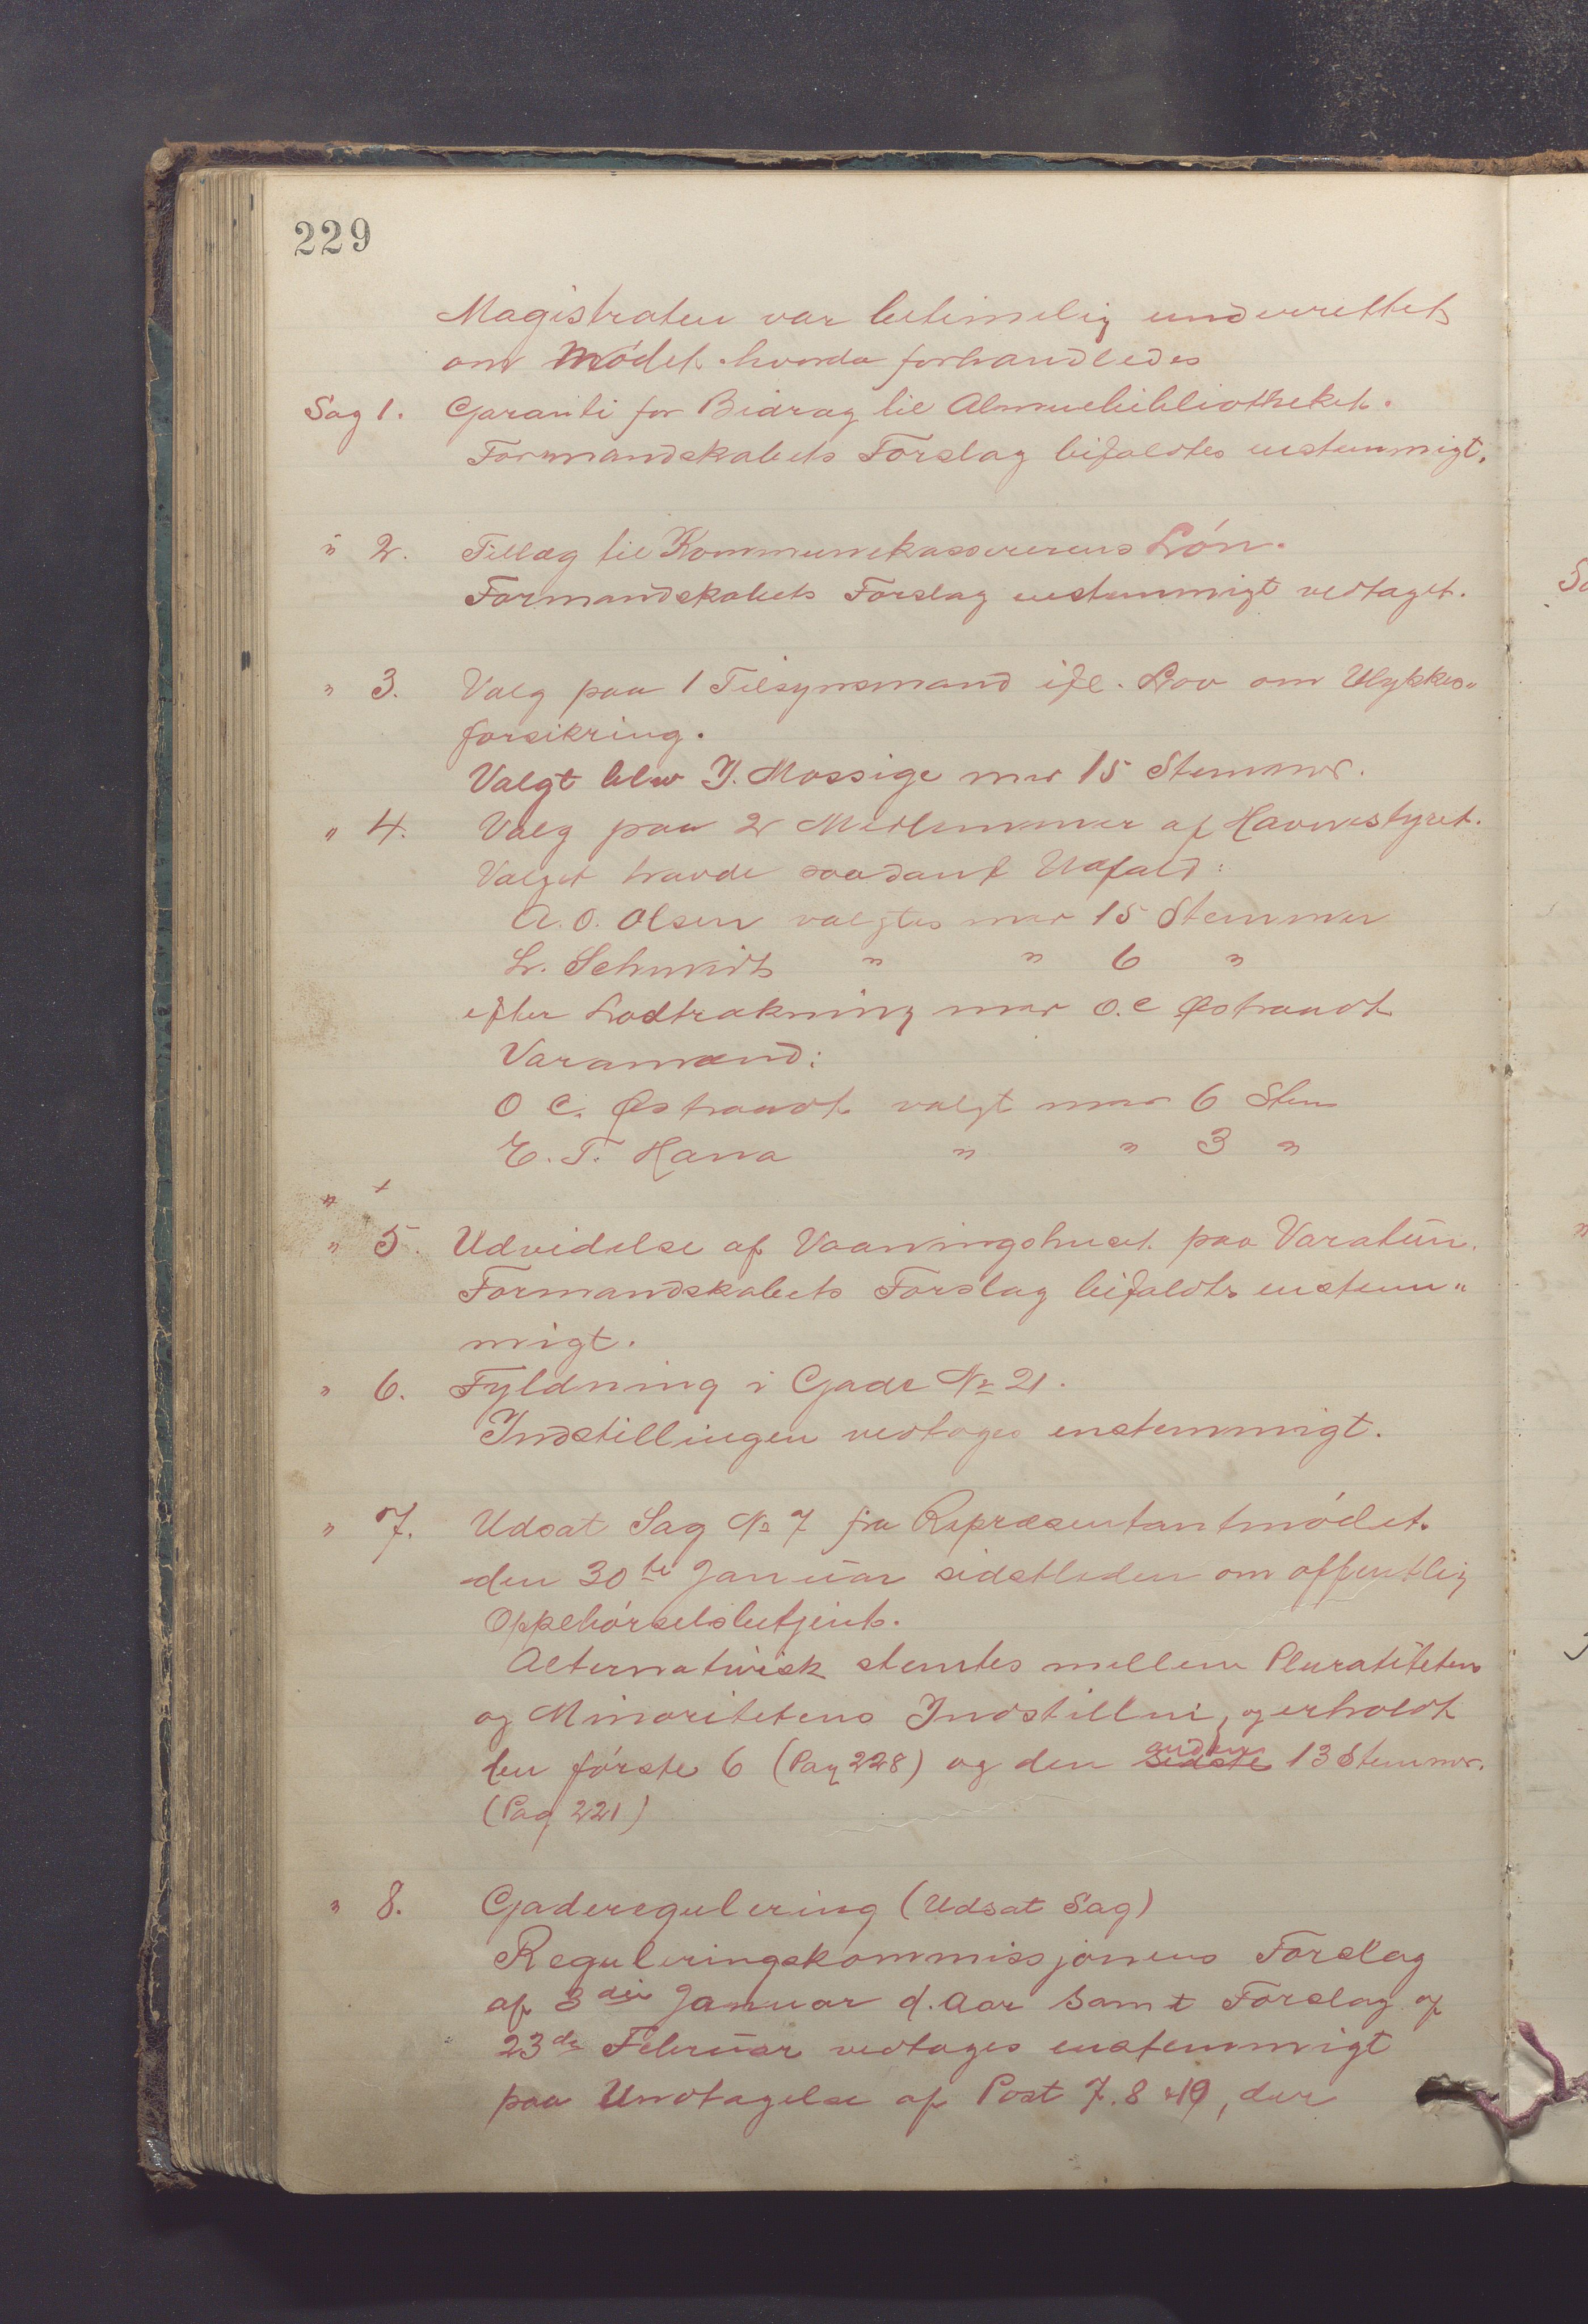 229
Magistraten var betimelig underrettet
om Mødet. hvorda forhandledes
Sag 1. Garanti for Bidrag til Almuebibliotheket.
Formandskabets Forslag bifaldtes enstemmigt.
" 2. Tillæg til Kommunekassererens Løn.
Formandskabets Forslag enstemmigt vedtaget.
" 3. Valg paa 1 Tilsynsmand ifl. Lov om Ulykkes"
forsikring.
Valgt blev Y. Mossige med 15 Stemmer.
" 4. Valg paa 2 Medlemmer af Havnestyret.
Valget havde saadant Udfald:
A. O. Olsen valgtes med 15 Stemmer
L. Schmidt " " 6 "
efter Lodtrækning med O. C Østrandt
Varamænd:
O C. Østrandt valgt med 6 Stem
E. T. Hana " " 3 "
" 5. Udvidelse af Vaaningshuset paa Varatun.
Formandskabets Forslag bifaldts enstem"
migt.
" 6. Fyldning i Gade No 21.
Indstillingen vedtages enstemmigt.
" 7. Udsat Sag No 7 fra Repræsentantmødet.
den 30te Januar sidstleden om offentlig
Oppebørselsbetjent.
Alternativisk stemtes mellem Pluratiteten
og Minoritetens Indstillni, og erholdt
den første 6 (Pag 228) og den sidste anden 13 Stemmer.
(Pag 221)
" 8. Gaderegulering (Udsat Sag)
Reguleringskommissjonens Forslag
af 3die Januar d. Aar samt Forslag af
23de Februar vedtages enstemmigt
paa Undtagelse af Post 7. 8 & 19, der